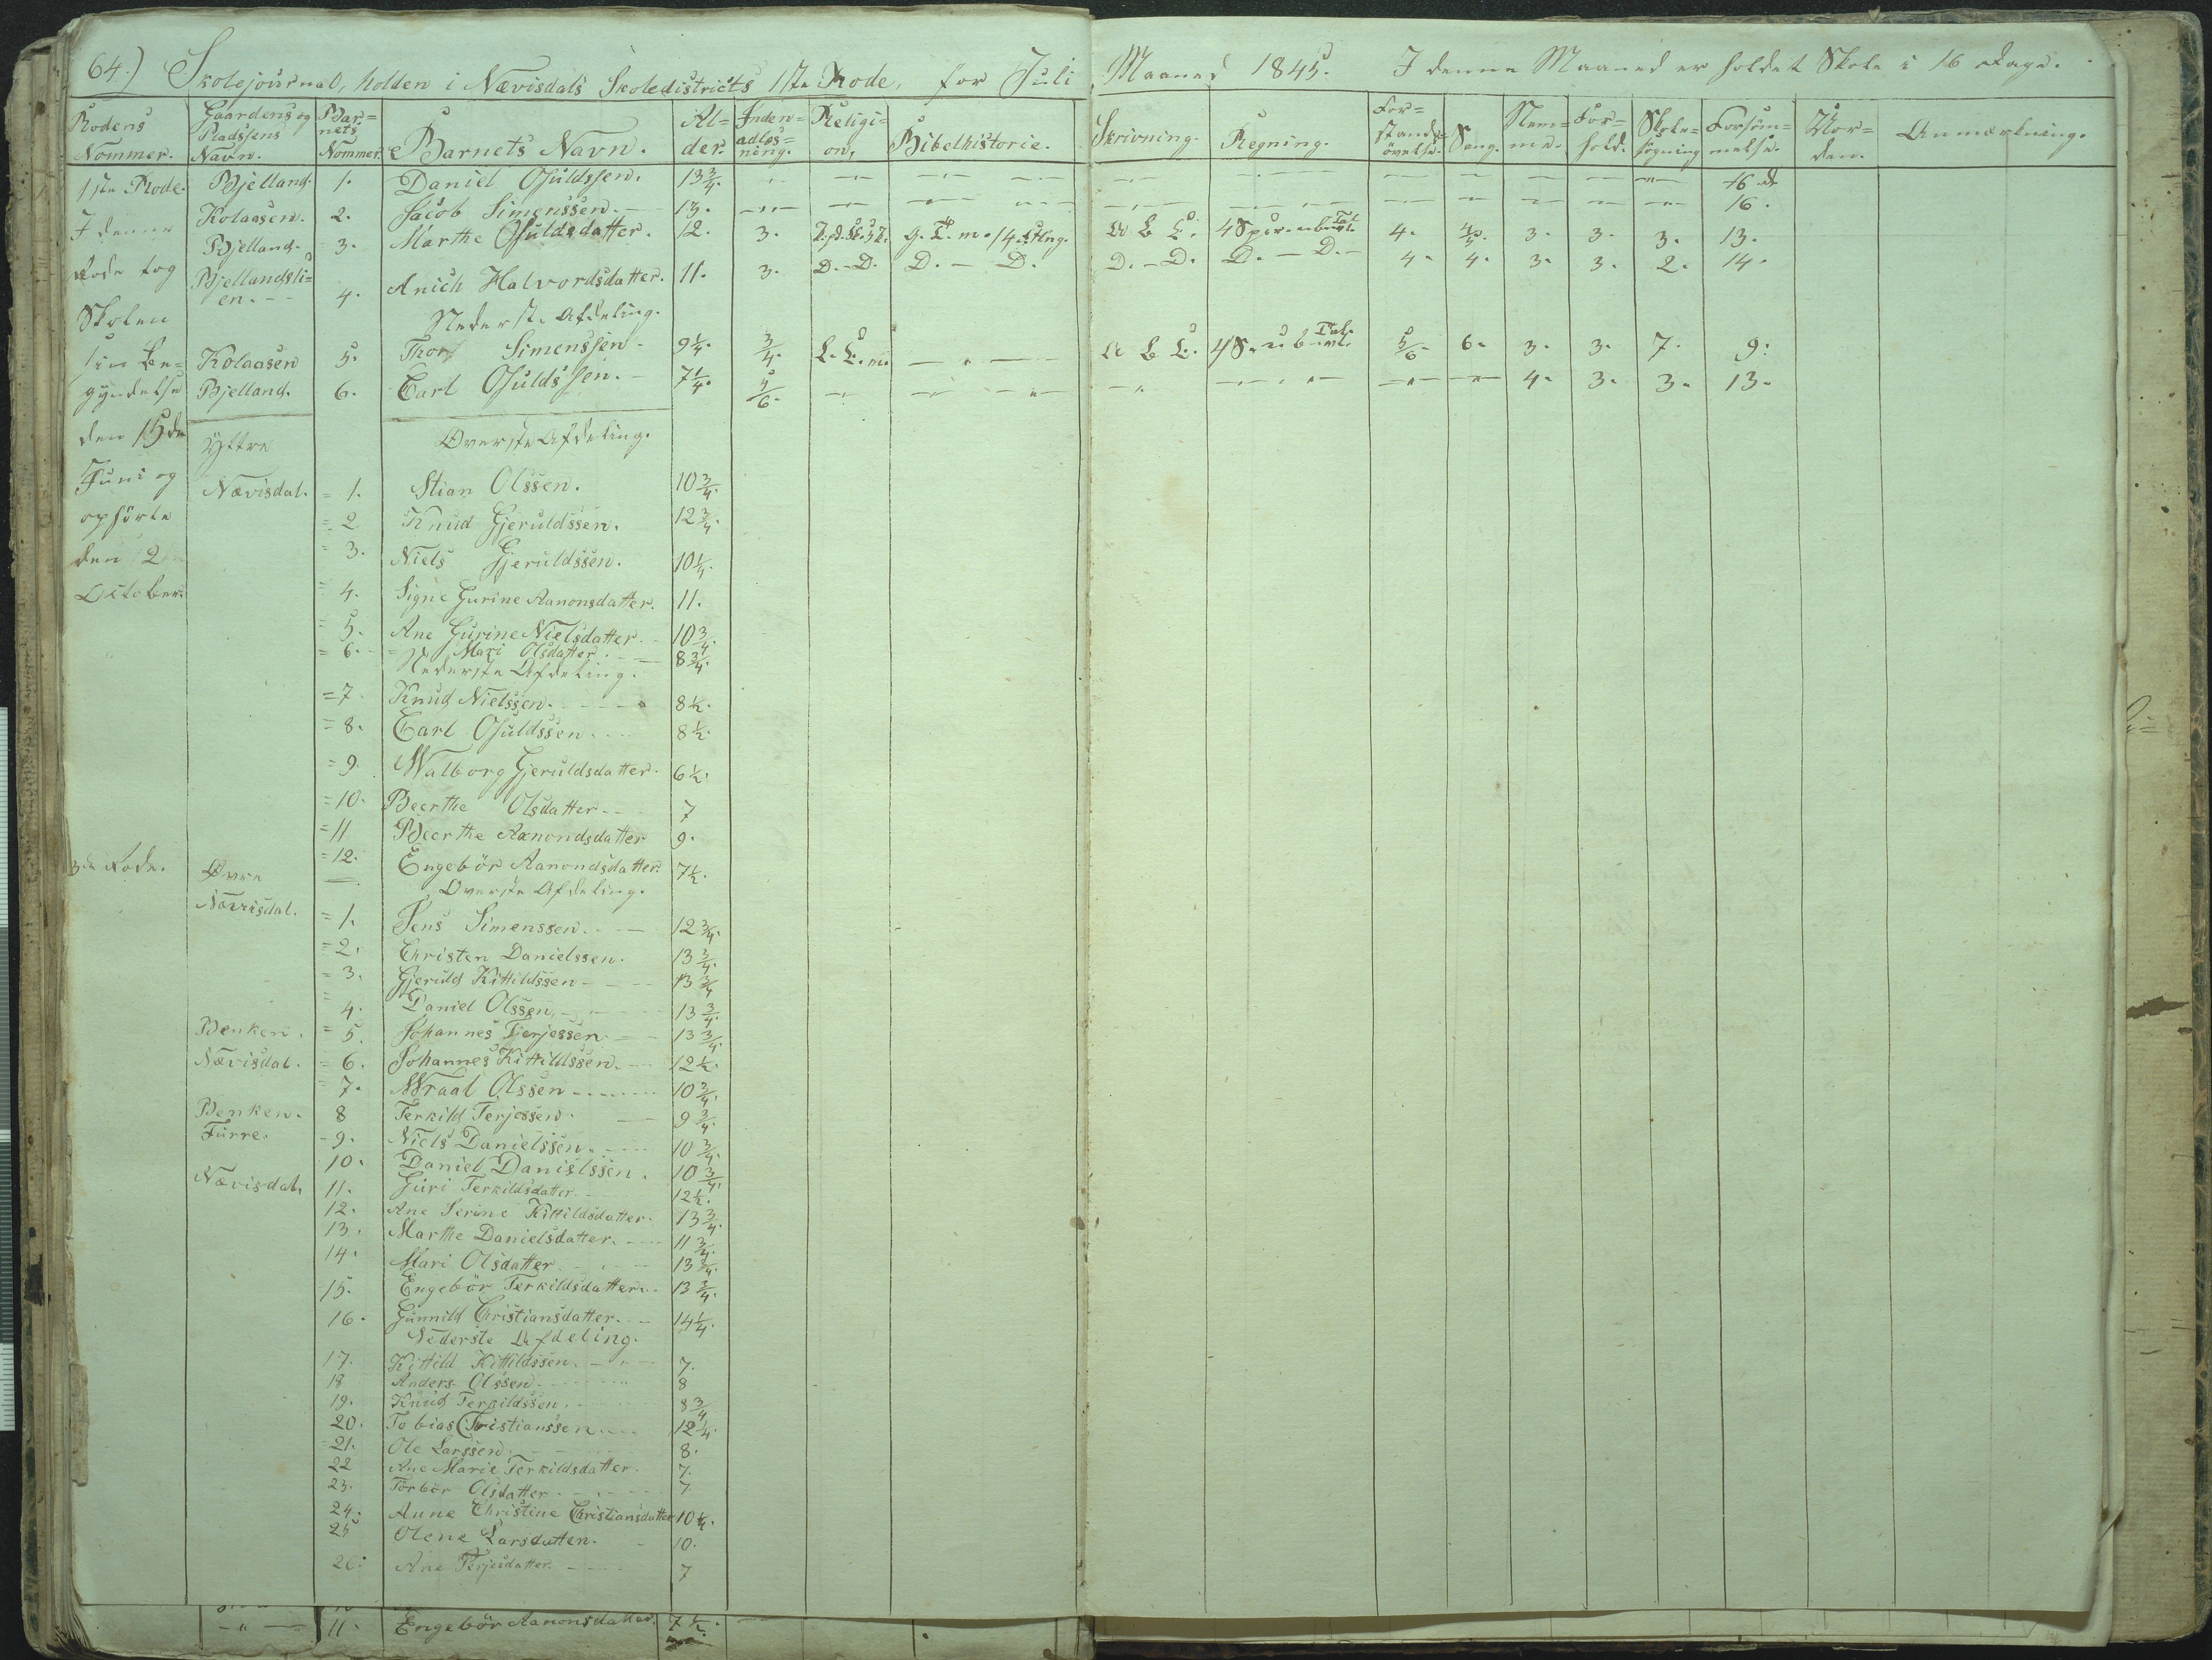 64.) Skolejournal, holden i Nævisdals Skoledistricts 1ste Rode, for Juli Maaned 1845. I denne Maaned er holdet Skole i 16 Dage.
Rodens Nommer. Gaardens og Pladssens Navn. Bar= nets Nommer. Barnets Navn. Al= der. Inden= adlæs= ning. Religi= on. Bibelhistorie. Skrivning. Regning. For= stands= övelse. Sang. Nem= me. For= hold. Skole= sögning Forsöm= melse. Vor= den. Anmærkning.
1ste Rode. Bjelland. 1. Daniel Osuldssen. 13 3/4. 16 d
I denne Kolaasen. 2. Jacob Simenssen. 13. 16.
Rode tog Bjelland. 3. Marthe Osuldsdatter. 12. 3. 4. 4/5. 3. 3. 3. 13.
Skolen Bjellandsli= en. 4. Anich Halvordsdatter. 11. 3. D.-D. D.-D. D.-D. D.-D. 4. 4. 3. 3. 2. 14.
Nederste Afdeling.
sin Be= Kolaasen 5. Thor Simenssen. 9 1/4. 3/4. 5/6. 6. 3. 3. 7. 9.
gyndelse Bjelland. 6. Carl Osuldssen. 7 1/4. 5/6. 4. 3. 3. 13.
den 15de Yttre Överste Afdeling.
Juni og Nævisdal. = 1. Stian Olssen. 10 3/4.
ophörte = 2 Knud Gjeruldssen. 12 3/4.
den 2 = 3. Niels Gjeruldssen. 10 1/4.
October. = 4. Signe Gurine Aanonsdatter. 11.
= 5. Ane Gurine Nielsdatter. 10 3/4.
= 6. Mari Olsdatter. 8 3/4.
Nederste Afdeling.
= 7. Knud Nielssen. 8 1/2.
= 8. Carl Osuldssen 8 1/2.
= 9. Walborg Gjeruldsdatter. 6 1/2.
= 10. Beerthe Olsdatter 7
= 11 Beerthe Aanondsdatter 9.
= 12. Engebör Aanondsdatter. 7 1/2.
3de Rode. Övre Överste Afdeling.
Nævisdal. = 1. Jens Simenssen. 12 3/4.
= 2. Christen Danielssen. 13 3/4.
= 3. Gjeruld Kittildssen 13 3/4
= 4. Daniel Olssen. 13 3/4.
Benken. = 5. Johannes Tjerjessen 13 3/4.
Nævisdal. = 6. Johannes Kittildssen. 12 1/2.
= 7. Wraal Olssen 10 3/4.
Benken. 8 Terkild Terjessen. 9 3/4.
Furre. 9. Niels Danielssen. 10 3/4.
10. Daniel Danielssen. 10 3/4.
Nævisdal. 11. Guri Terkildsdatter. 12 1/2.
12. Ane Serine Kittildsdatter. 13 3/4.
13. Marthe Danielsdatter. 11 3/4.
14. Mari Olsdatter 13 3/4.
15. Engebör Terkildsdatter. 13 3/4.
16. Gunnild Christiansdatter. 14 1/4.
Nederste Afdeling.
17. Kittild Kittildssen. 7.
18 Anders Olssen 8
19. Knud Terkildssen. 8 3/4
20. Tobias Christianssen 12 1/4.
21. Ole Larssen 8.
22 Ane Marie Terkildsdatter. 7.
23. Torbör Olsdatter 7
24. Anne Christine Christiansdatter 10 1/4.
25 Olene Larsdatter. 10.
26. Ane Terjesdatter. 7
11. Engebör Aanonsdatter. 7 1/2.